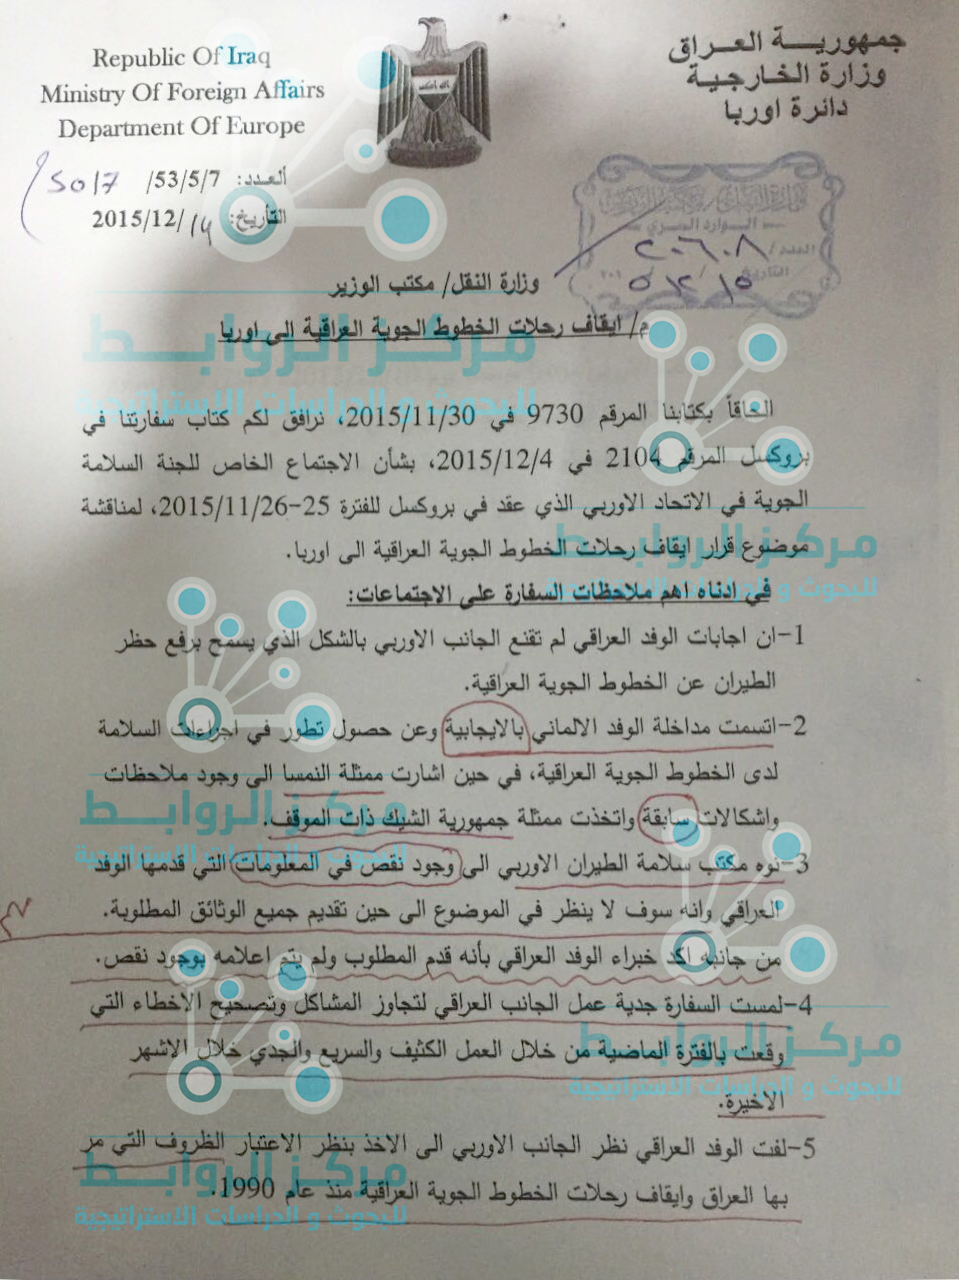 Republic Of Iraq
Ministry Of Foreign Affairs
Department Of Europe
جمهورية العراق
وزارة الخارجية
دائرة اوربا
العدد: 53/5/7/ 5017
التأريخ: 14/ 2015/12
الوارد
العدد/ ٢٠٦٠٨
التاريخ
وزارة النقل/ مكتب الوزير
م/ ايقاف رحلات الخطوط الجوية العراقية الى اوربا
الحاقاً بكتابنا المرقم 9730 في 2015/11/30، نرافق لكم كتاب سفارتنا في
بروكسل المرقم 2104 في 2015/12/4، بشأن الاجتماع الخاص للجنة السلامة
الجوية في الاتحاد الاوربي الذي عقد في بروكسل للفترة 25-2015/11/26، لمناقشة
موضوع قرار ايقاف رحلات الخطوط الجوية العراقية الى اوربا.
في ادناه اهم ملاحظات السفارة على الاجتماعات:
1-ان اجابات الوفد العراقي لم تقنع الجانب الاوربي بالشكل الذي يسمح برفع حظر
الطيران عن الخطوط الجوية العراقية.
2-اتسمت مداخلة الوفد الالماني بالايجابية وعن حصول تطور في اجراءات السلامة
لدى الخطوط الجوية العراقية، في حين اشارت ممثلة النمسا الى وجود ملاحظات
واشكالات سابقة واتخذت ممثلة جمهورية الشيك ذات الموقف.
3-نوه مكتب سلامة الطيران الاوربي الى وجود نقص في المعلومات التي قدمها الوفد
العراقي وانه سوف لا ينظر في الموضوع الى حين تقديم جميع الوثائق المطلوبة.
من جانبه اكد خبراء الوفد العراقي بأنه قدم المطلوب ولم يتم اعلامه بوجود نقص.
4-لمست السفارة جدية عمل الجانب العراقي لتجاوز المشاكل وتصحيح الاخطاء التي
وقعت بالفترة الماضية من خلال العمل الكثيف والسريع والجدي خلال الاشهر
الاخيرة.
5-لفت الوفد العراقي نظر الجانب الاوربي الى الاخذ بنظر الاعتبار الظروف التي مر
بها العراق وايقاف رحلات الخطوط الجوية العراقية منذ عام 1990.
مركز الروابط
للبحوث و الدراسات الاستراتيجية
مركز الروابط
للبحوث و الدراسات الاستراتيجية
مركز الروابط
للبحوث و الدراسات الاستراتيجية
مركز الروابط
للبحوث و الدراسات الاستراتيجية
مركز الروابط
للبحوث و الدراسات الاستراتيجية